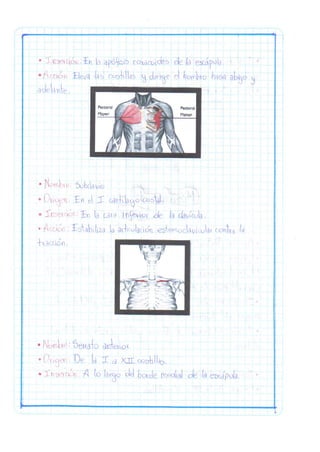 • Inserción: En la apófisis coracoides de la escápula.
• Acción: Eleva las costillas y dirige el hombro hacia abajo y
adelante.
Pectoral Pectoral
Mayor Menor
• Nombre: Subclavio
• Origen: En el I cartílago costal
• Inserción: En la cara inferior de la clavícula.
• Acción: Estabiliza la articulación esternoclavicular contra la
tracción.
• Nombre: Serrato anterior
• Origen: De la I a XII costilla.
• Inserción: A lo largo del borde medial de la escápula.